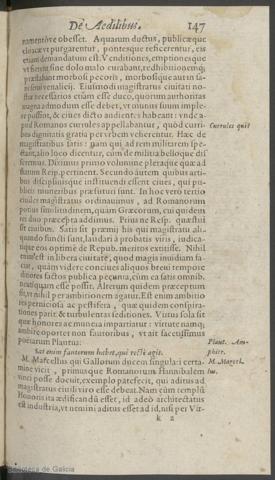 De Aedilibus. 147
namentóve obesset. Aquarum ductus, publicæque
cloacæ vt purgarentur, pontesque reficerentur, eis
etiam demandatum est. Venditiones, emptionesque
vt fierent sine dolo malo curabant, redhibitionemq;
præstabant morbosi pecoris, morbosique aut
venalicij. Eiusmodi magistratus ciuitati nostræ
necessarios etiam esse duco, quorum authoritas
magna admodum esse debet, vt munus suum implere
possint, & ciues dicto audientes habeant: vnde apud
Romanos curules appellabantur, quòd curri-
bus dignitatis gratia per vrbem veherentur. Hæc de
magistratibus satis: nam qui ad rem militarem
loco dicentur, cùm de militia belloque disseremus.
Diximus primo volumine pleraque quæ ad
Resp. pertinent. Secundo autem quibus
disciplinisque instituendi essent ciues, qui publicis
muneribus præfuturi sunt. In hoc verò tertio
ciuiles magistratus ordinauimus, ad Romanorum
potius similitudinem, quàm Græcorum, cui quidem
duo præcepta addimus. Prius ne Resp. quæstui
sit ciuibus. Satis sit præmij his qui magistratu aliquando
functi sunt, laudari à probatis viris, indicatique
eos optimè de Repub. meritos extitisse. Nihil
est in libera ciuitate, quod magis inuidiam faciat,
quàm videre conciues aliquos breui tempore
ditiores factos publica pecunia, cùm ea satis omnibus
esse possit. Alterum quidem præceptum
sit, vt nihil per ambitionem agatur. Est enim ambitio
res perniciosa ac pestifera, quæ quidem conspirationes
parit & turbulentas seditiones. Virtus sola sit
quæ honores ac munera impartiatur: virtute namq;
ambire oportet non fautoribus, vt ait facetissimus
poëtarum Plautus:
Sat enim fautorum habet, qui rectè agit.
M. Marcellus qui Gallorum ducem singulari certa-
mine vicit, primusque Romanorum Hannibalem
vinci posse docuit, exemplo patefecit, qui aditus ad
magistratus ciuili viro esse debeat. Nam cùm templū
Honoris ita ædificandū esset, id adeò architectatus
est industria, vt nemini aditus esset ad id, nisi per Vir-
k 2
Curules qui
Plaut. Am-
phitr.
M. Marcel-
lus.
Biblioteca de Galicia